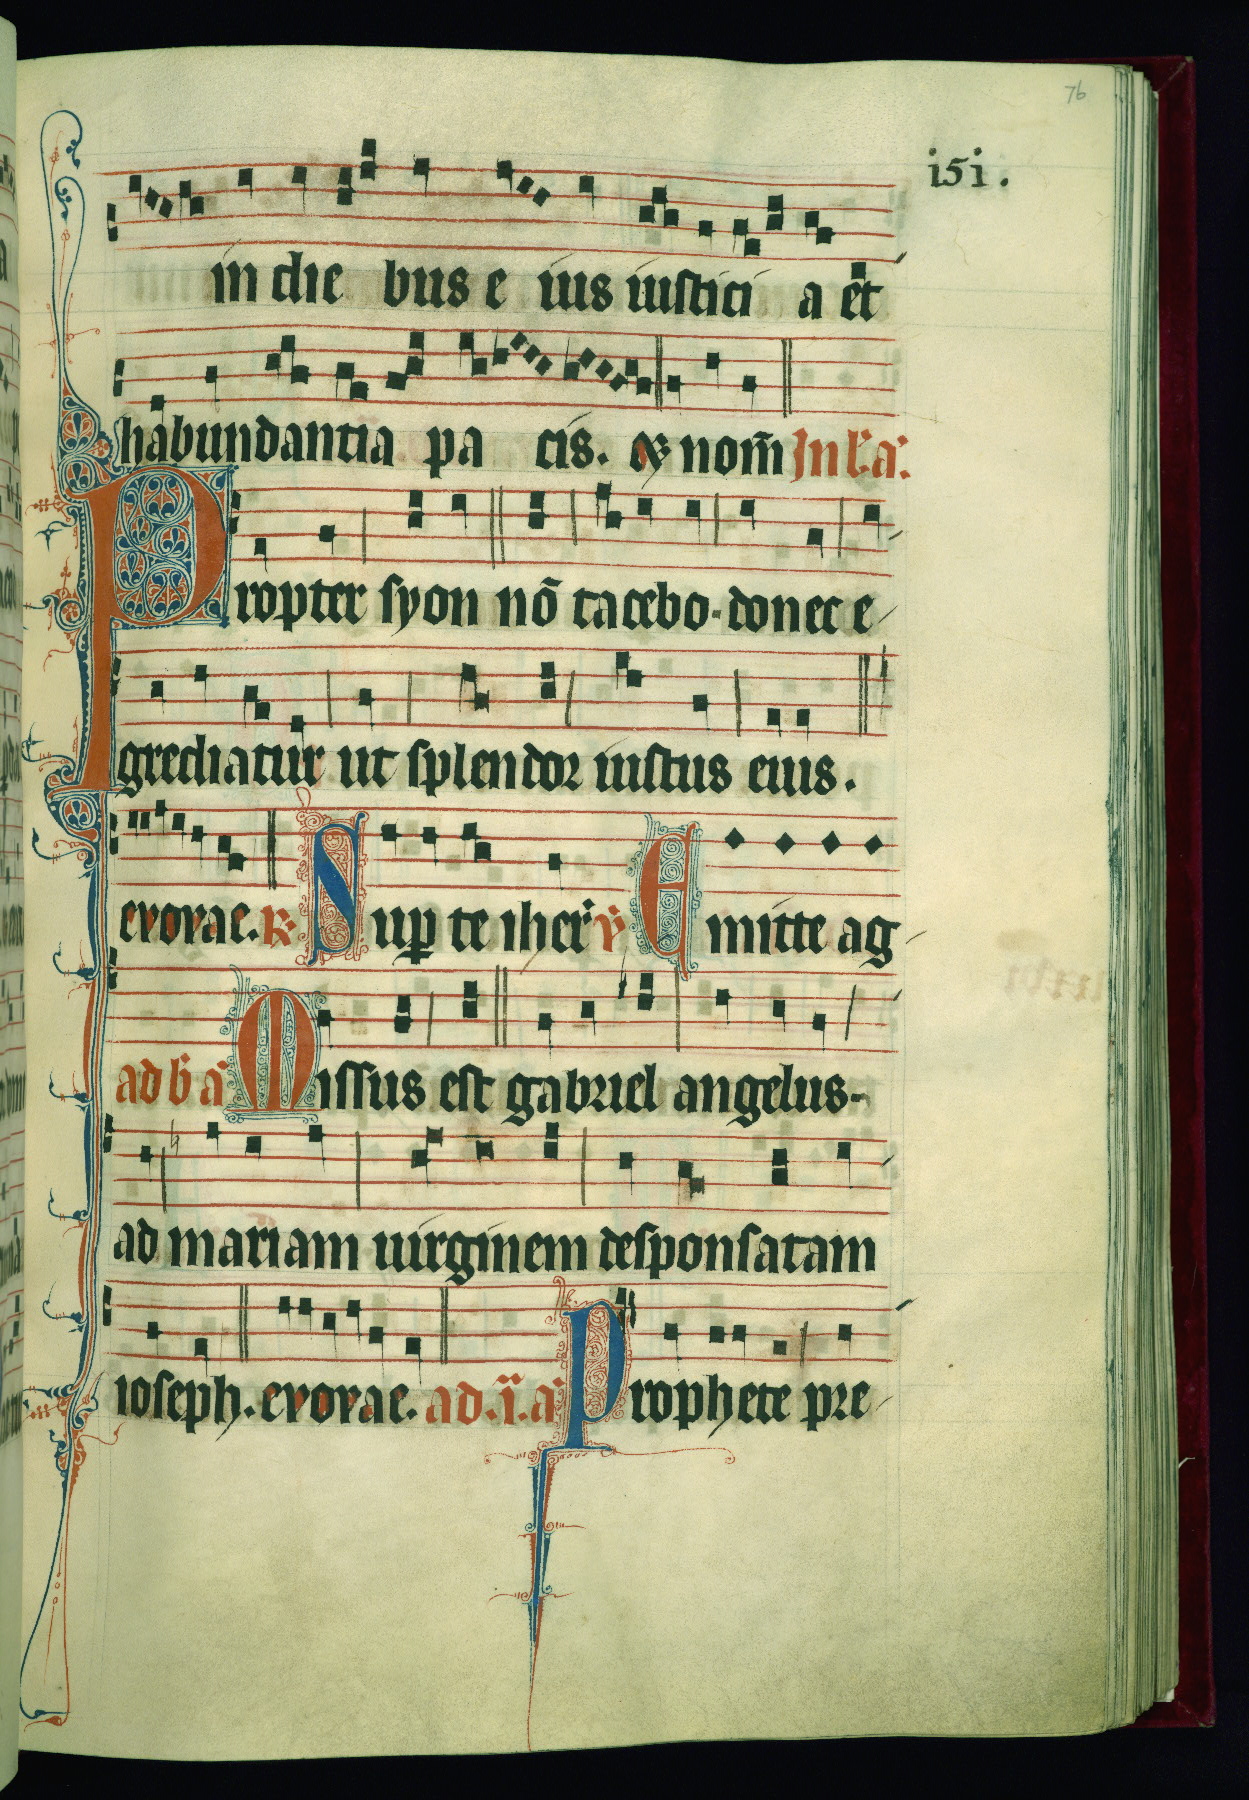 76
i5i.
in die bus e ius iustici a et
habundantia pa cis. & nom̄ In l. a.
Propter syon nō tacebo. donec e
grediatur ut splendor iustus eius.
evovae. R. Sup te iher ℣ Emitte ag
ad b a Missus est gabriel angelus.
ad mariam uirginem desponsatam
ioseph. evovae. ad .i. a Prophete pre